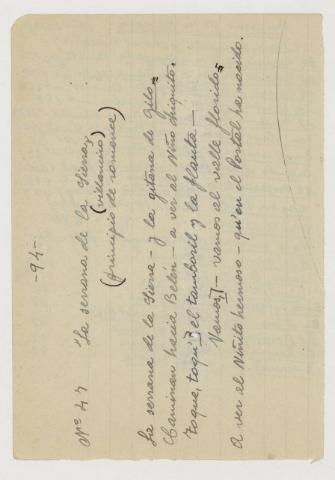 -94-
Nº 47 "La serrana de la Sierra"
(villancico)
(principio de romance)
La serrana de la Sierra - y la gitana de Gilo=
Caminan hacia Belén - a ver al Niño chiquito.
Toque, toqui? el tamboril y la flauta -
Vamos] - vamos al valle florido=
A ver el Niñito hermoso - qu'en el Portal ha nacido.